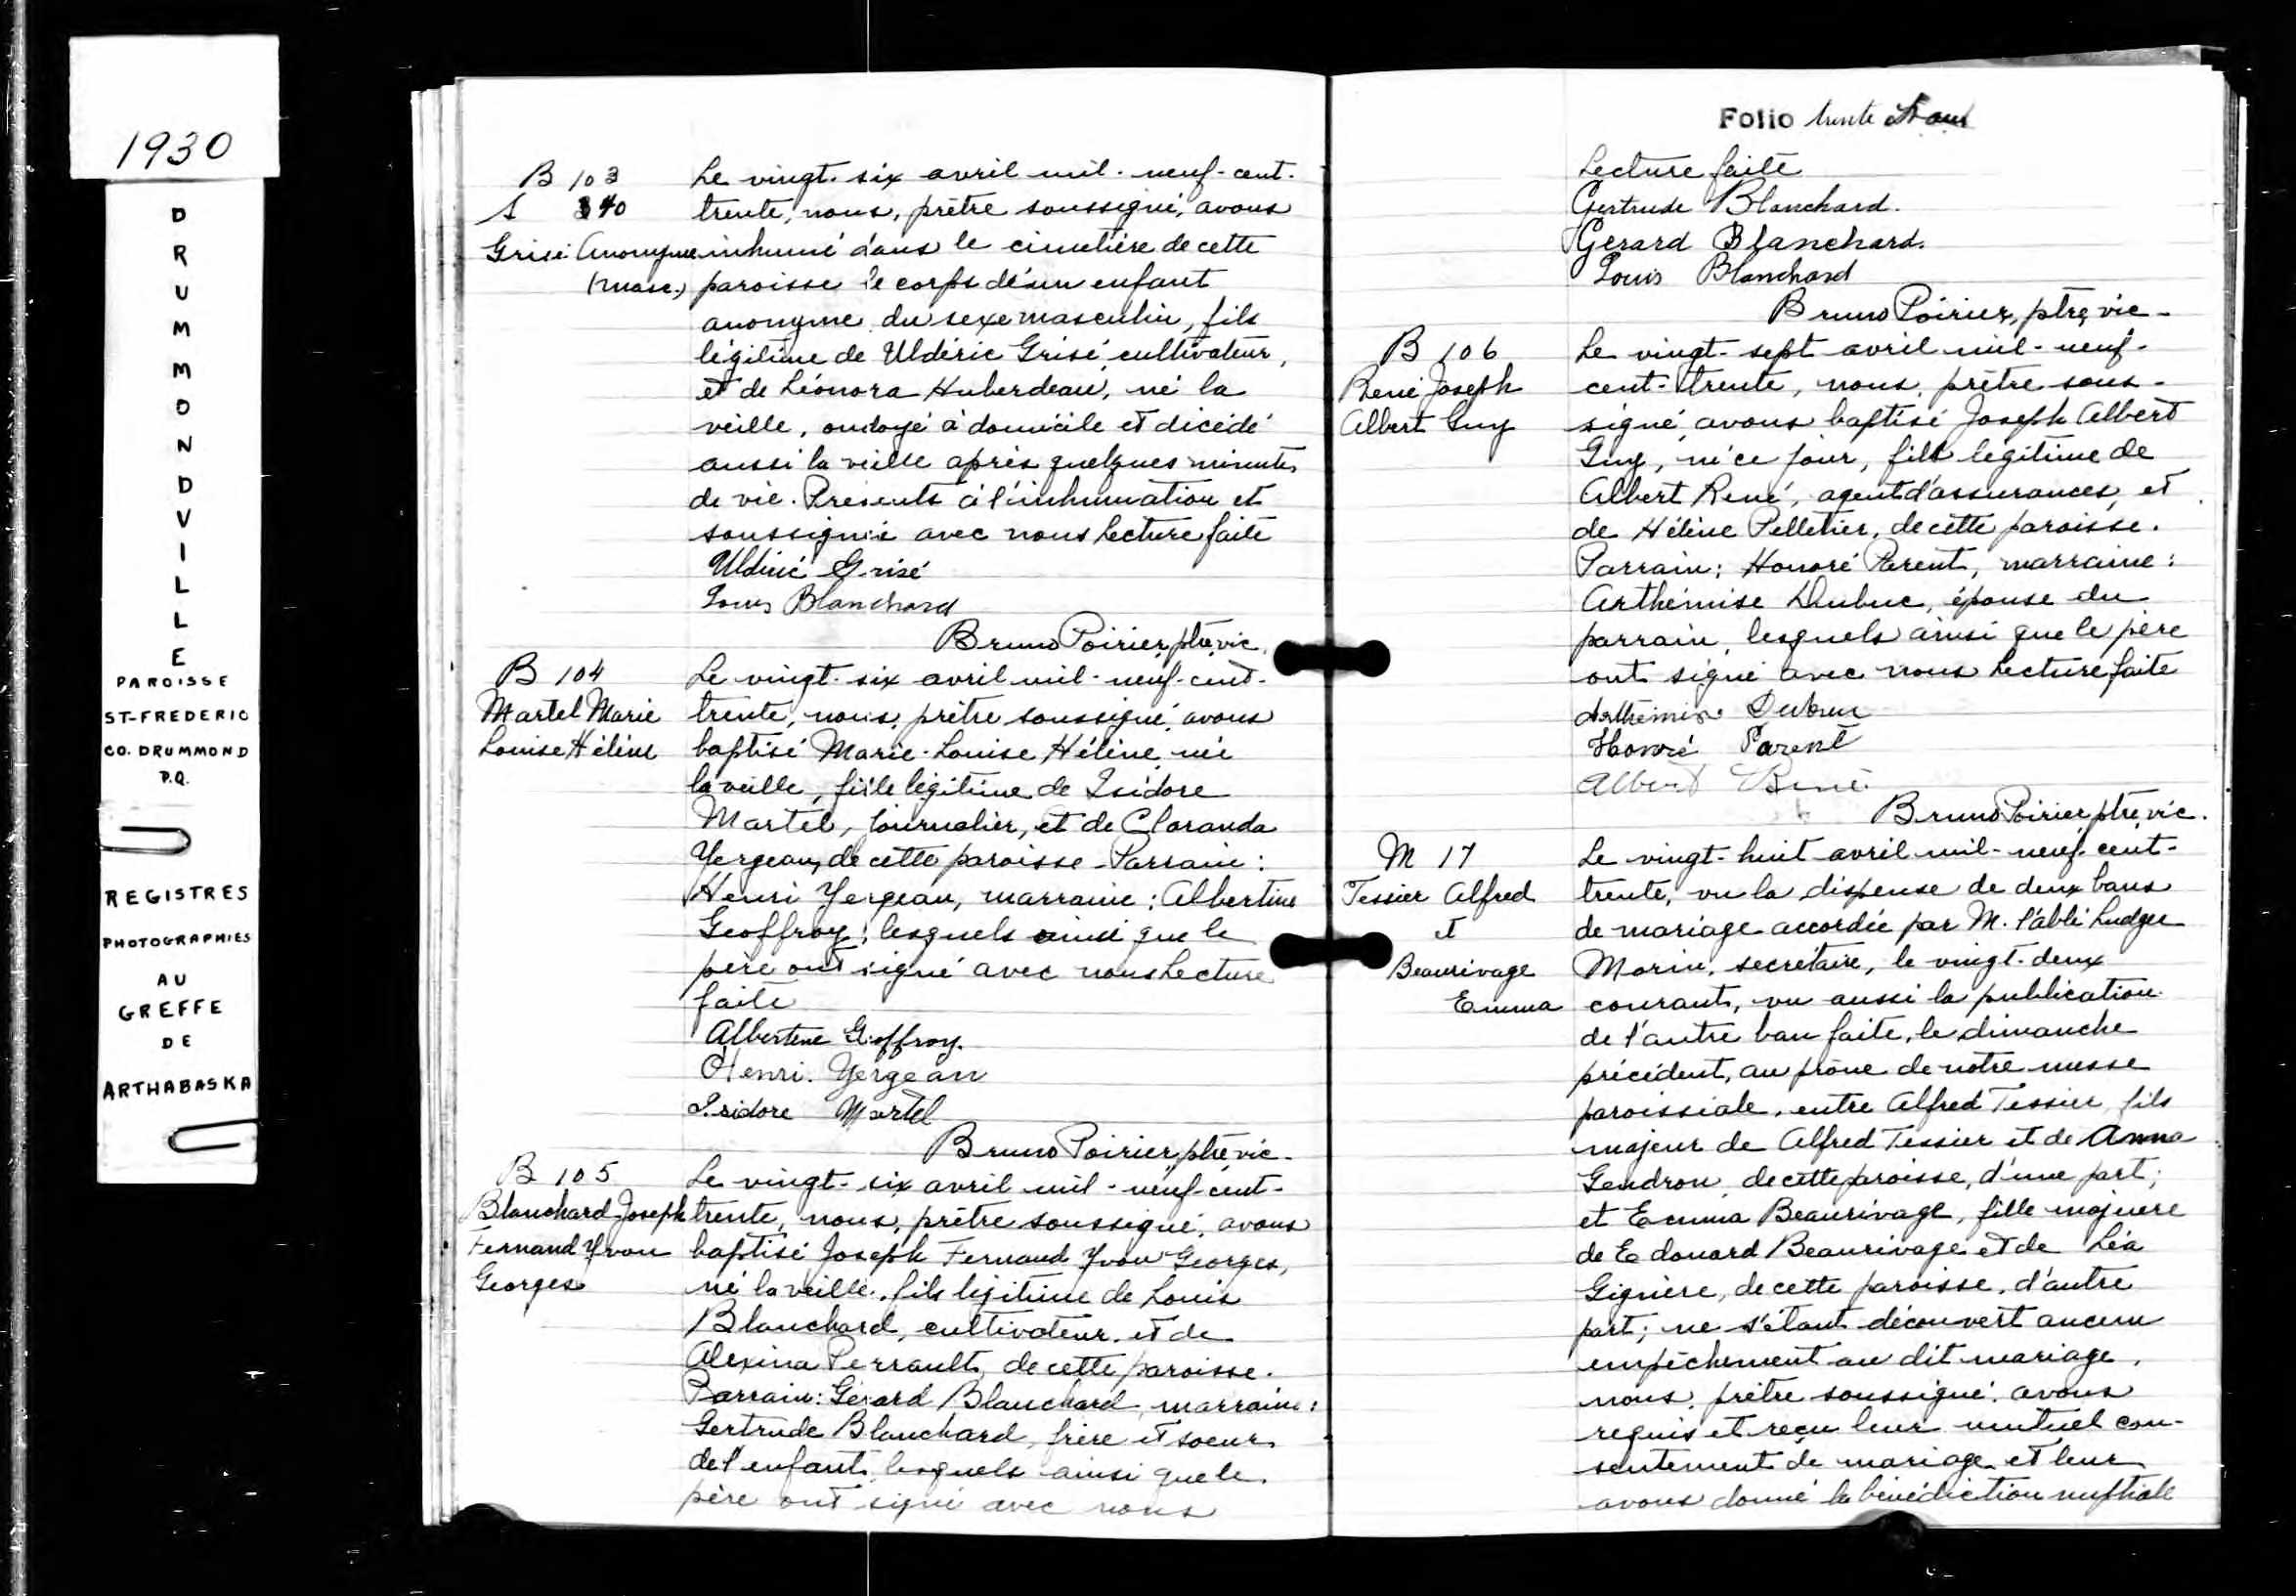 1930
DRUMMONDVILLE
PAROISSE
ST-FREDERIC
CO. DRUMMOND
P.Q.
REGISTRES
PHOTOGRAPHIES
AU
GREFFE
DE
ARTHABASKA
B 103
S 40
Grisé Anonyme
(masc.)
Le vingt-six avril mil-neuf-cent-
trente, nous, prêtre soussigné, avons
inhumé dans le cimetière de cette
paroisse le corps d'un enfant
anonyme du sexe masculin, fils
légitime de Uldéric Grisé, cultivateur,
et de Léonora Huberdeau, né la
veille, ondoyé à domicile et décédé
aussi la veille après quelques minutes
de vie. Présents à l'inhumation et
soussignés avec nous Lecture faite
Uldéric Grisé
Louis Blanchard
Bruno Poirier, ptre, vic.
B 104
Martel Marie
Louise Hélène
Le vingt-six avril mil-neuf-cent-
trente, nous, prêtre soussigné, avons
baptisé Marie-Louise Hélène, née
la veille, fille légitime de Isidore
Martel, journalier, et de Cloranda
Yergeau, de cette paroisse. Parrain:
Henri Yergeau, marraine: Albertine
Geoffroy, lesquels ainsi que le
père ont signé avec nous Lecture
faite
Albertine Geoffroy.
Henri. Yergeau
Isidore Martel
Bruno Poirier, ptre, vic.
B 105
Blanchard Joseph
Fernand Yvon
Georges
Le vingt-six avril mil-neuf-cent-
trente, nous, prêtre soussigné, avons
baptisé Joseph Fernand Yvon Georges,
né la veille, fils légitime de Louis
Blanchard, cultivateur, et de
Alexina Perrault, de cette paroisse.
Parrain: Gérard Blanchard, marraine:
Gertrude Blanchard, frère et soeur
de l'enfant, lesquels ainsi que le
père ont signé avec nous
Folio trente
Lecture faite
Gertrude Blanchard.
Gérard Blanchard.
Louis Blanchard
Bruno Poirier, ptre, vic.
B 106
René Joseph
Albert Guy
Le vingt-sept avril mil-neuf-
cent-trente, nous, prêtre sous-
signé, avons baptisé Joseph Albert
Guy, né ce jour, fils légitime de
Albert René, agent d'assurances, et
de Hélène Pelletier, de cette paroisse.
Parrain: Honoré Parent, marraine:
Arthémise Dubuc, épouse du
parrain, lesquels ainsi que le père
ont signé avec nous Lecture faite
Arthémise Dubuc
Honoré Parent
Albert René
Bruno Poirier ptre, vic.
M 17
Tessier Alfred
et
Beaurivage
Emma
Le vingt-huit avril mil-neuf-cent-
trente, vu la dispense de deux bans
de mariage accordée par M. l'abbé Ludger
Morin, secrétaire, le vingt-deux
courant, vu aussi la publication
de l'autre ban faite, le dimanche
précédent, au prône de notre messe
paroissiale, entre Alfred Tessier, fils
majeur de Alfred Tessier et de Anna
Gendron, de cette paroisse, d'une part;
et Emma Beaurivage, fille majeure
de Edouard Beaurivage et de Léa
Gignère, de cette paroisse, d'autre
part; ne s'étant découvert aucun
empêchement au dit mariage,
nous, prêtre soussigné, avons
requis et reçu leur mutuel con-
sentement de mariage et leur
avons donné la bénédiction nuptiale